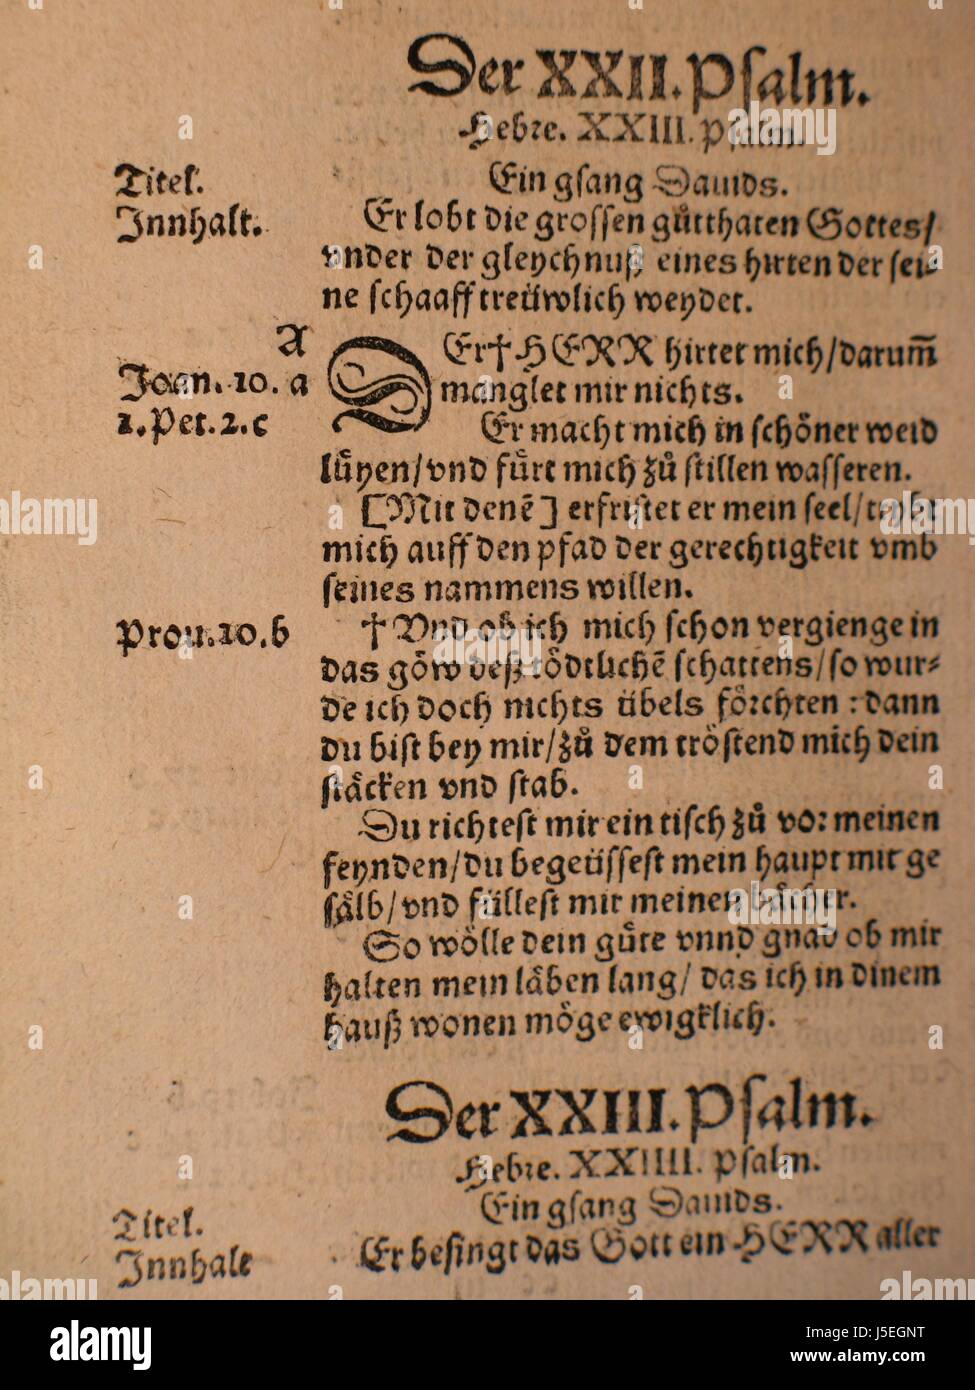 Der XXII. Psalm.
Hebre. XXIII. Psalm.
Titel.
Ein gsang Dauids.
Innhalt.
Er lobt die grossen gůtthaten Gottes/
vnder der gleychnuß eines hirten der sei-
ne schaaff treüwlich weydet.
A
Joan. 10. a
1. Pet. 2. c
DEr † HERR hirtet mich/darum̃
manglet mir nichts.
Er macht mich in schöner weid
lüyen/vnd fürt mich zů stillen wasseren.
[Mit denẽ] erfristet er mein seel/treybt
mich auff den pfad der gerechtigkeit vmb
seines nammens willen.
Prou. 10. b
† Vnd ob ich mich schon vergienge in
das göw deß tödtlichẽ schattens/so wur-
de ich doch nichts übels förchten : dann
du bist bey mir/zů dem tröstend mich dein
stäcken vnd stab.
Du richtest mir ein tisch zů vor meinen
feynden/du begeüssest mein haupt mit ge
sälb/vnd füllest mir meinen bächer.
So wölle dein güte vnnd gnad ob mir
halten mein läben lang/ das ich in dinem
hauß wonen möge ewigklich.
Der XXIII. Psalm.
Hebre. XXIIII. Psalm.
Ein gsang Dauids.
Titel.
Innhalt
Er besingt das Gott ein HERR aller
alamy
alamy stock photo
J5EGNT
www.alamy.com